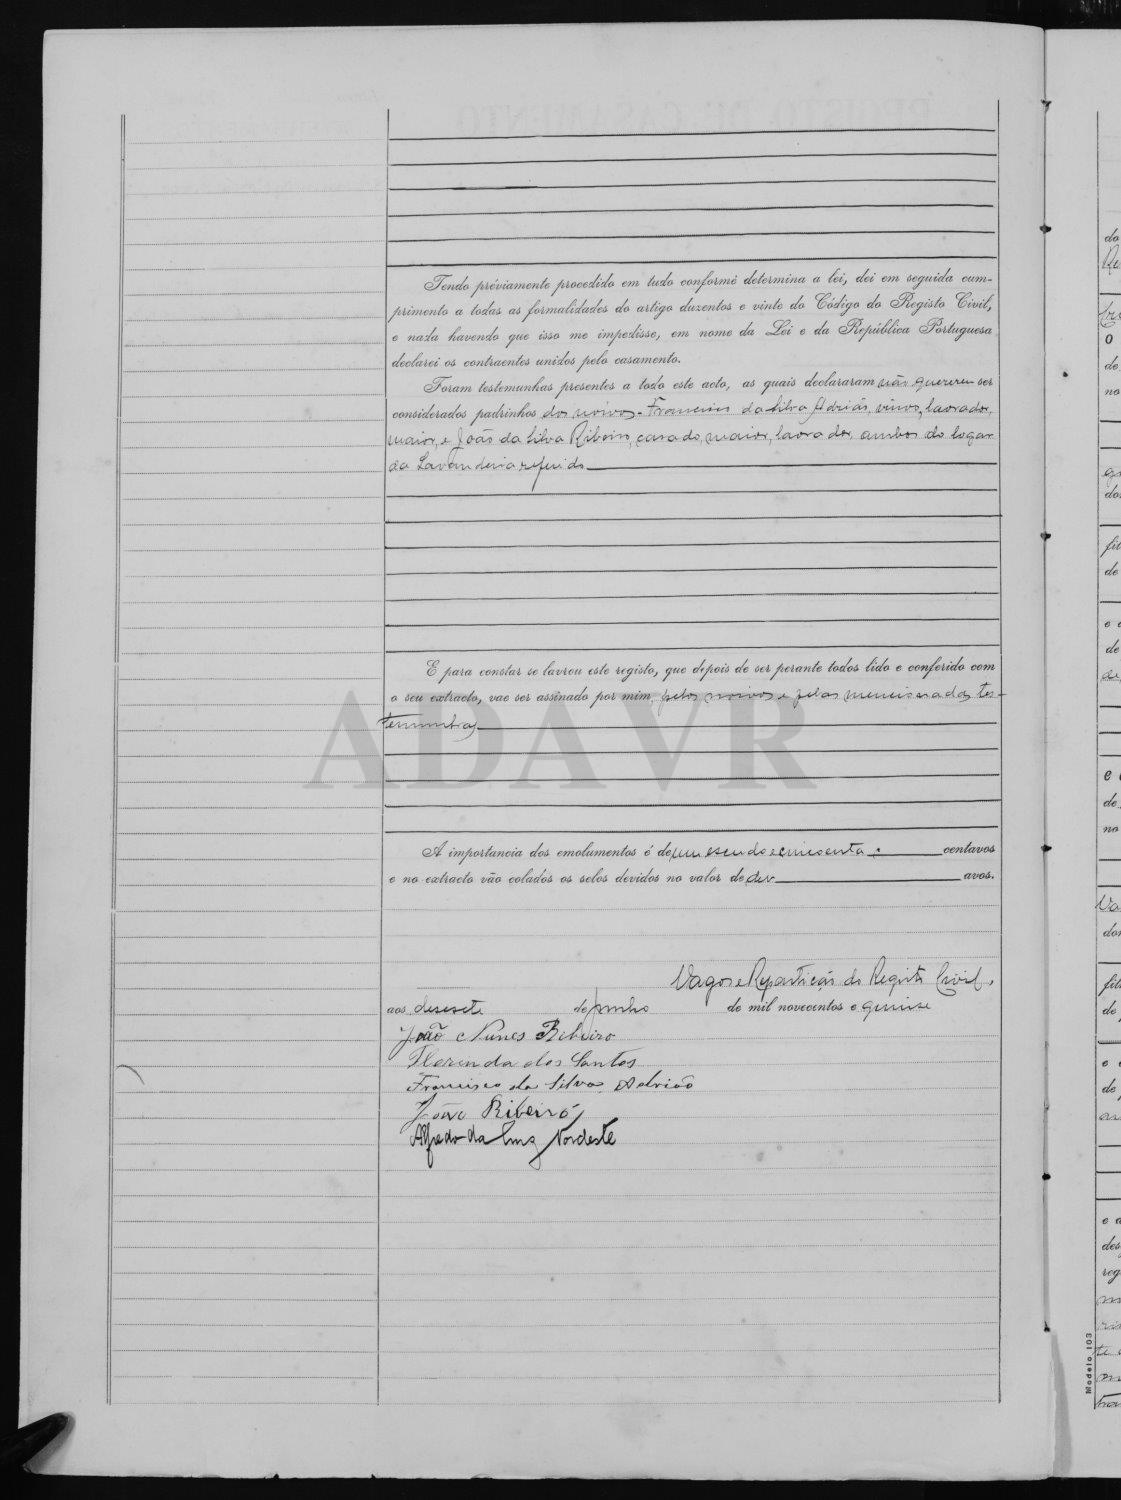 Tendo préviamente procedido em tudo conforme determina a lei, dei em seguida cum-
primento a todas as formalidades do artigo duzentos e vinte do Código do Registo Civil,
e nada havendo que isso me impedisse, em nome da Lei e da República Portuguesa
declarei os contraentes unidos pelo casamento.
Foram testemunhas presentes a todo este acto, as quais declararam não quererem ser
considerados padrinhos dos noivos. Francisco da Silva Adrião, viuvo, lavrador,
maior, e João da Silva Ribeiro, casado, maior, lavrador, ambos do logar
da Lavandeira referido
E para constar se lavrou este registo, que depois de ser perante todos lido e conferido com
o seu extracto, vae ser assinado por mim, pelos noivos e pelas mencionadas tes-
temunhas
ADAVR
A importancia dos emolumentos é de um escudo e cincoenta centavos
e no extracto vão colados os selos devidos no valor de dez avos.
Vagos e Repartição do Registo Civil,
aos desesete de junho de mil novecentos e quinse
João Nunes Ribeiro
Florinda dos Santos
Francisco da Silva Adrião
João Ribeiro
Alfredo da Nordeste
Modelo 103